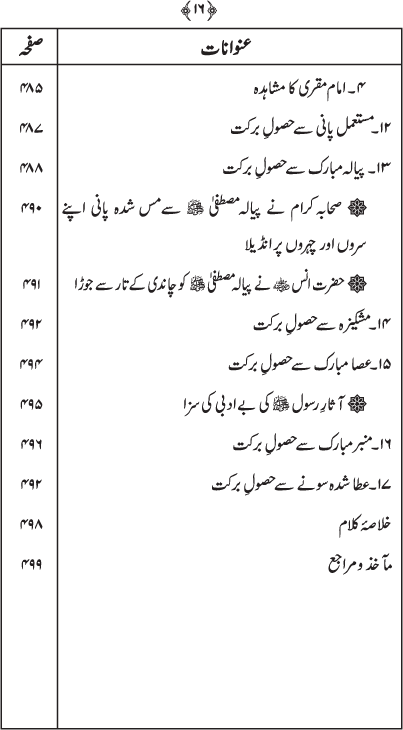 ﴿۱۶﴾
عنوانات صفحہ
۴۔ امام مقری کا مشاہدہ ۴۸۵
۱۲۔ مستعمل پانی سے حصولِ برکت ۴۸۷
۱۳۔ پیالہ مبارک سے حصولِ برکت ۴۸۸
۞ صحابہ کرام نے پیالہ مصطفیٰ ﷺ سے مس شدہ پانی اپنے ۴۹۰
سروں اور چہروں پر انڈیلا
۞ حضرت انس ؓ نے پیالہ مصطفیٰ ﷺ کو چاندی کے تار سے جوڑا ۴۹۱
۱۴۔ مشکیزہ سے حصولِ برکت ۴۹۲
۱۵۔ عصا مبارک سے حصولِ برکت ۴۹۴
۞ آثارِ رسول ﷺ کی بے ادبی کی سزا ۴۹۵
۱۶۔ منبر مبارک سے حصولِ برکت ۴۹۶
۱۷۔ عطا شدہ سونے سے حصولِ برکت ۴۹۲
خلاصۂ کلام ۴۹۸
مآخذ و مراجع ۴۹۹